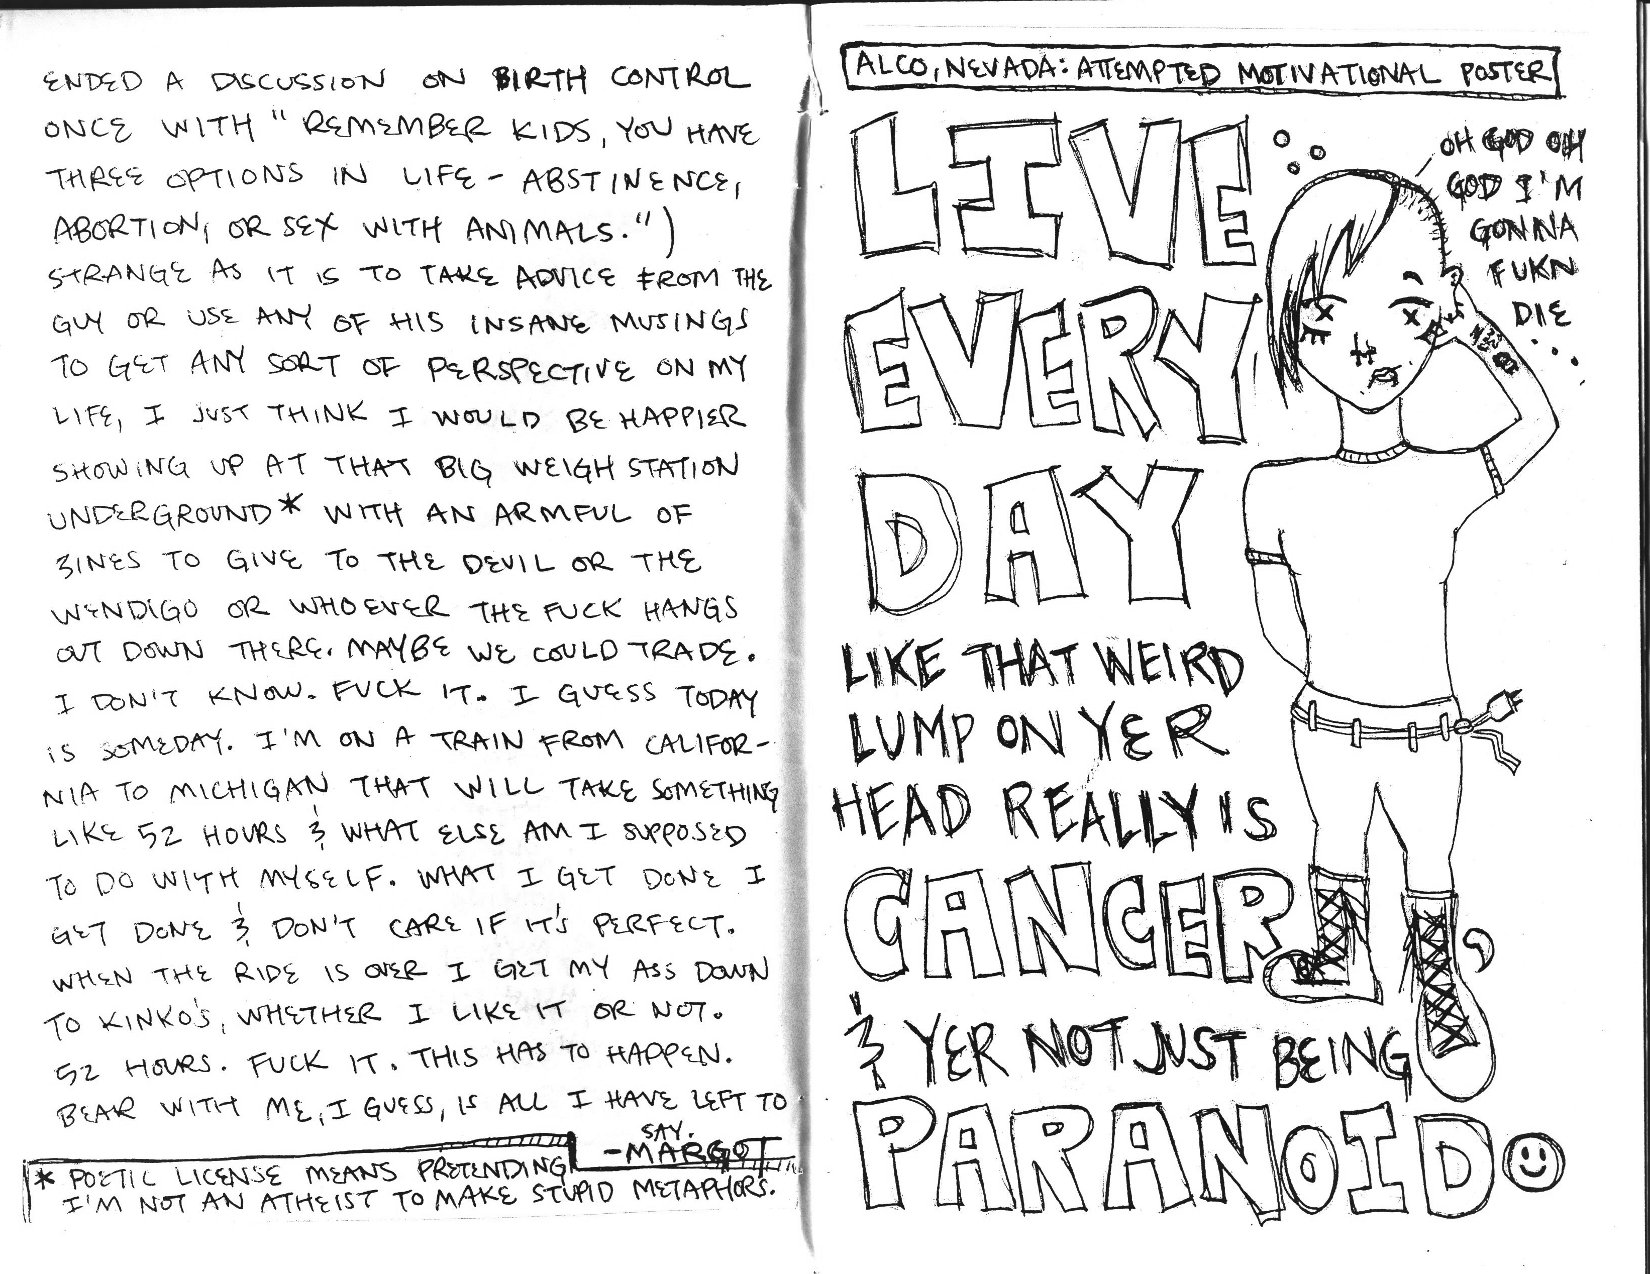 ENDED A DISCUSSION ON BIRTH CONTROL
ONCE WITH "REMEMBER KIDS, YOU HAVE
THREE OPTIONS IN LIFE - ABSTINENCE,
ABORTION, OR SEX WITH ANIMALS.")
STRANGE AS IT IS TO TAKE ADVICE FROM THE
GUY OR USE ANY OF HIS INSANE MUSINGS
TO GET ANY SORT OF PERSPECTIVE ON MY
LIFE, I JUST THINK I WOULD BE HAPPIER
SHOWING UP AT THAT BIG WEIGH STATION
UNDERGROUND* WITH AN ARMFUL OF
ZINES TO GIVE TO THE DEVIL OR THE
WENDIGO OR WHOEVER THE FUCK HANGS
OUT DOWN THERE. MAYBE WE COULD TRADE.
I DON'T KNOW. FUCK IT. I GUESS TODAY
IS SOMEDAY. I'M ON A TRAIN FROM CALIFOR-
NIA TO MICHIGAN THAT WILL TAKE SOMETHING
LIKE 52 HOURS & WHAT ELSE AM I SUPPOSED
TO DO WITH MYSELF. WHAT I GET DONE I
GET DONE & DON'T CARE IF IT'S PERFECT.
WHEN THE RIDE IS OVER I GET MY ASS DOWN
TO KINKO'S, WHETHER I LIKE IT OR NOT.
52 HOURS. FUCK IT. THIS HAS TO HAPPEN.
BEAR WITH ME, I GUESS, IS ALL I HAVE LEFT TO
SAY.
-MARGOT
* POETIC LICENSE MEANS PRETENDING
I'M NOT AN ATHEIST TO MAKE STUPID METAPHORS.
ALCO, NEVADA: ATTEMPTED MOTIVATIONAL POSTER
LIVE
EVERY
DAY
LIKE THAT WEIRD
LUMP ON YER
HEAD REALLY IS
CANCER,
& YER NOT JUST BEING
PARANOID
OH GOD OH
GOD I'M
GONNA
FUKN
DIE